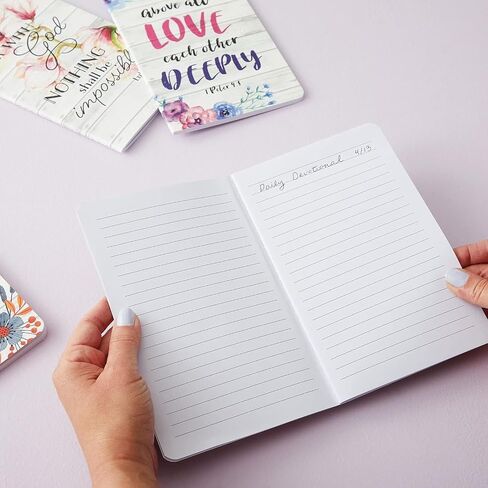 With
God
NOTHING
shall be
impossible
Above all
LOVE
each other
DEEPLY
1 Peter 4:8
Daily Devotional 4/13